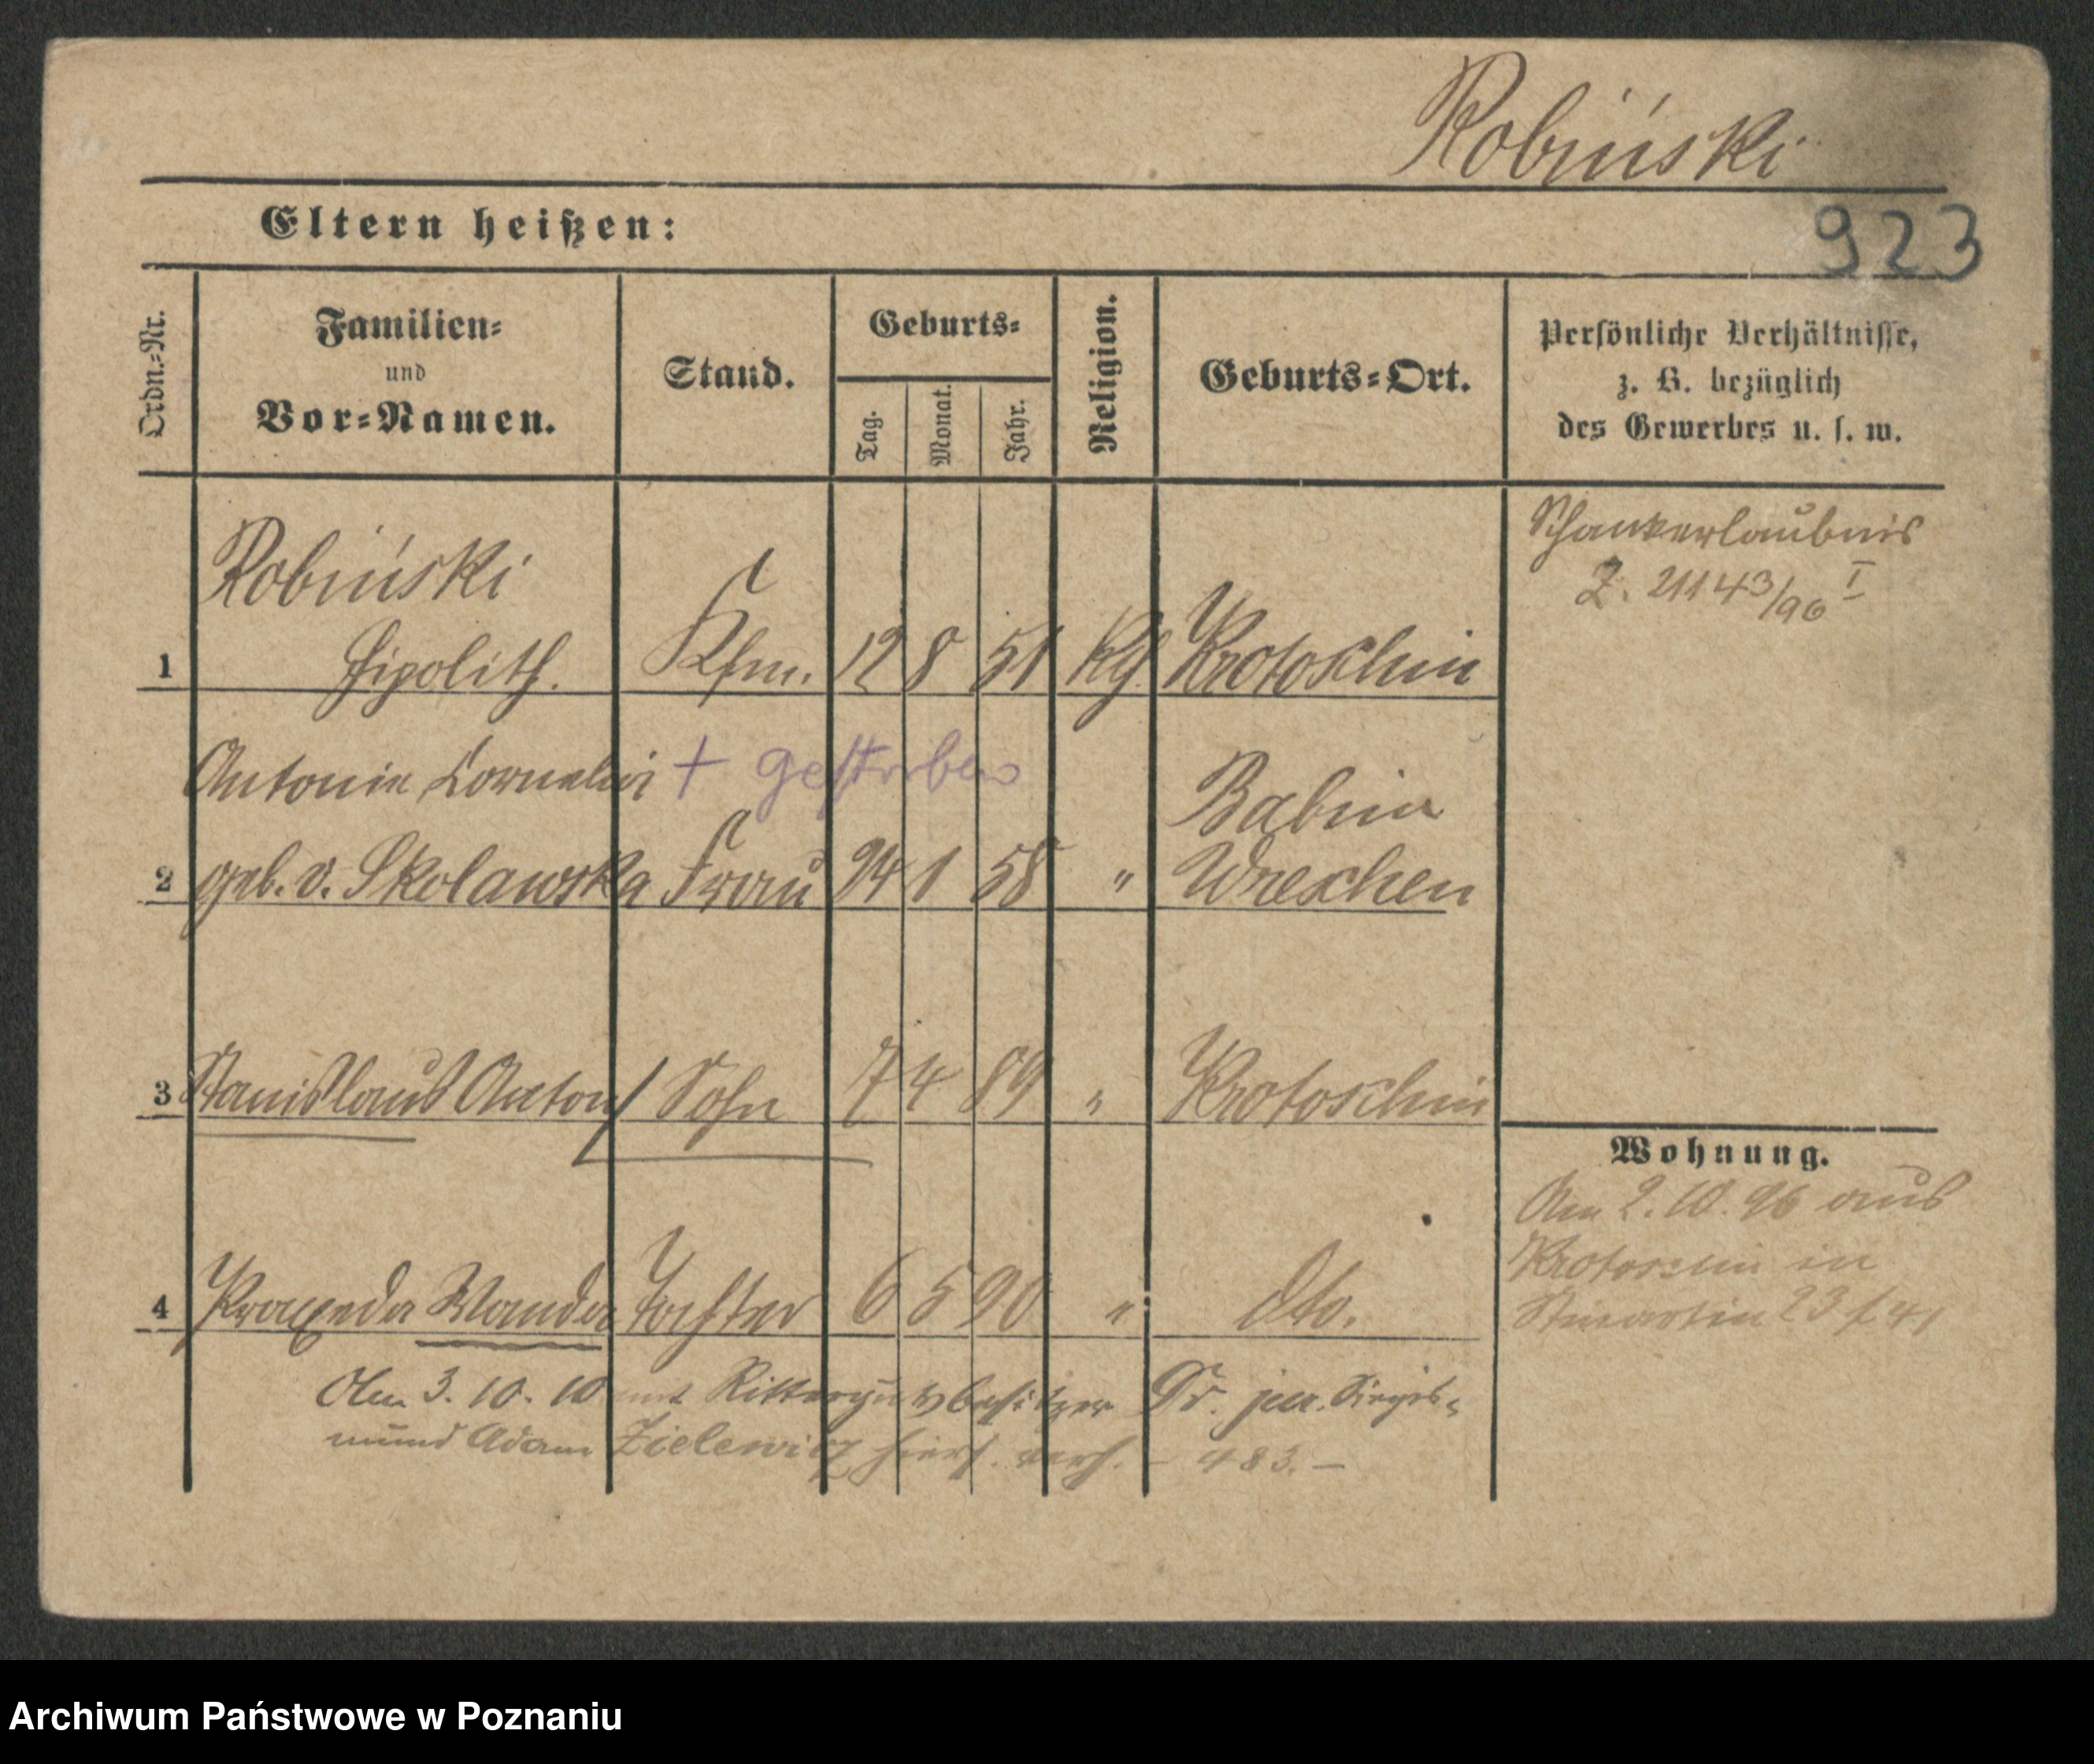 Robiński
Eltern heißen:
923
Ordn.=Nr.
Familien=
und
Vor=Namen.
Stand.
Geburts=
Tag.
Monat.
Jahr.
Religion.
Geburts=Ort.
Persönliche Verhältnisse,
z. B. bezüglich
des Gewerbes u. s. w.
Schankerlaubnis
Z. 21143/96 I
Robiński
1 Hipolith. Kfm. 12 8 51 Kth. Krotoschin
Antonie + gestorben Babin
2 geb. v. Skolawska Frau 24 1 58 " Wreschen
3 Stanislaus Anton Sohn 7 4 89 " Krotoschin
Wohnung.
Am 2. 10. 96 aus
Krotoschin in
Stmartin 23
4 Praxeda Wanda Tochter 6 5 90 " dto.
Am 3. 10. 10 mit Rittergutsbesitzer Dr. jur. Siegis=
mund Adam Zielewicz hiers. verh. - 483. -
Archiwum Państwowe w Poznaniu